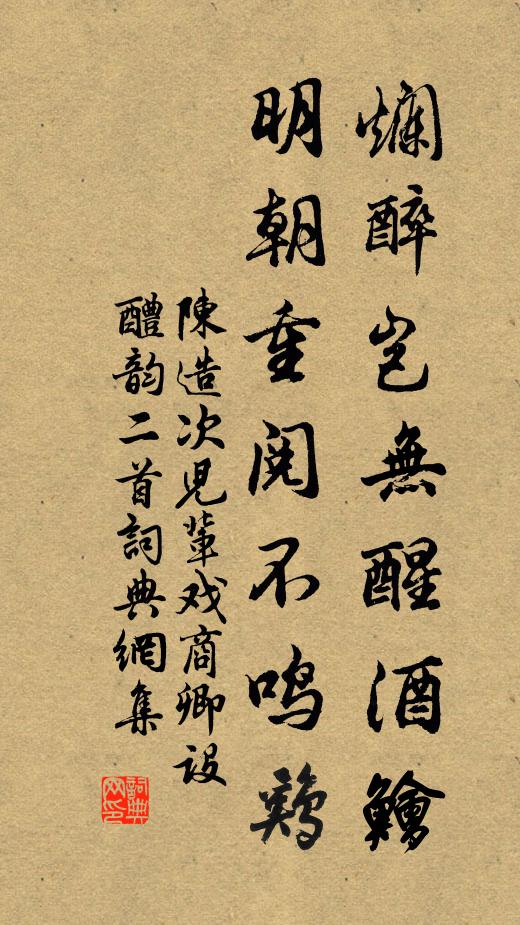 爛醉岂無醒酒鱠
明朝重閱不鳴鷄
陳造次兒輩戏商卿设
醴韵二首詞典網集
詞典网印